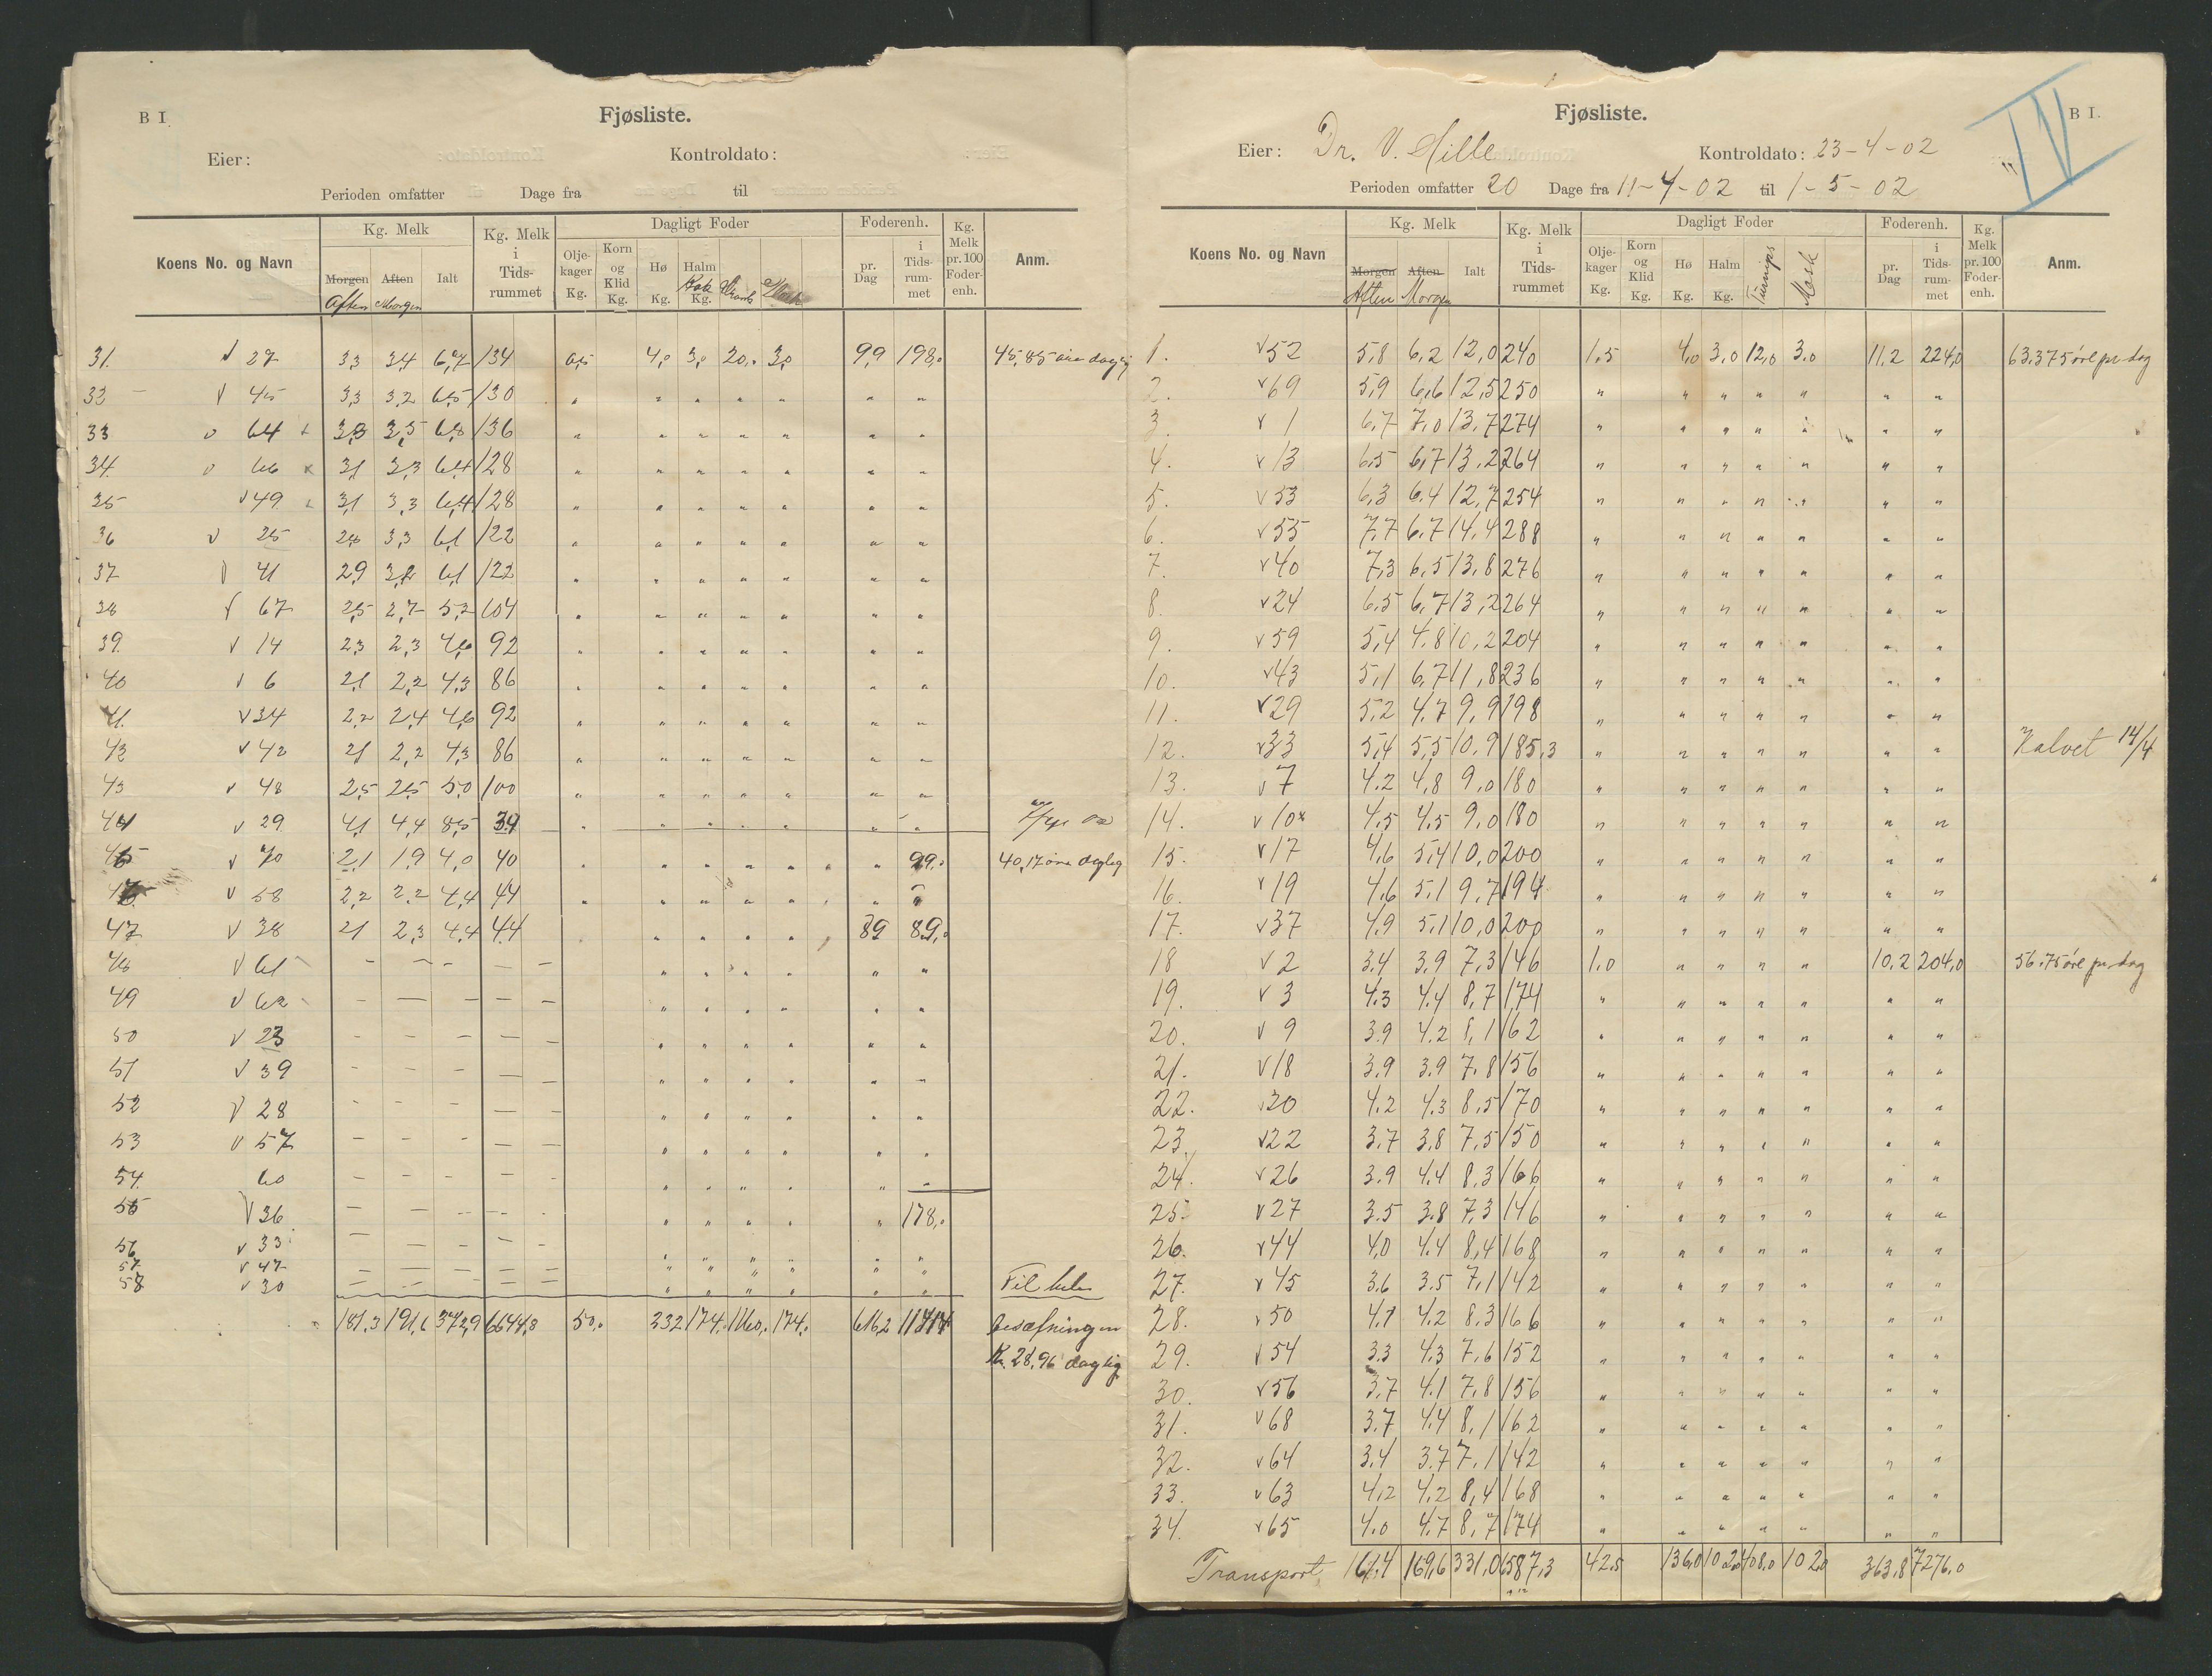 B I.
Fjøsliste.
Eier:
Kontroldato:
Perioden omfatter Dage fra til
Koens No. og Navn
Kg. Melk
Morgen Aften Ialt
Aften Morgen
Kg. Melk i Tids-rummet
Dagligt Foder
Olje-kager Kg.
Korn og Klid Kg.
Hø Kg.
Halm Kg.
Foderenh.
pr. Dag
i Tids-rum-met
Kg. Melk pr. 100 Foder-enh.
Anm.
31. √ 27 3,3 3,4 6,7 134 0,5 4,0 3,0 20,0 3,0 9,9 198,0 45,85 øre daglig
33 √ 45 3,3 3,2 6,5 130 " " " " " " "
33 √ 64 3,3 3,5 6,8 136 " " " " " " "
34. √ 66 x 3,1 3,3 6,4 128 " " " " " " "
35 √ 49 3,1 3,3 6,4 128 " " " " " " "
36 √ 25 2,8 3,3 6,1 122 " " " " " " "
37 √ 41 2,9 3,2 6,1 122 " " " " " " "
38 √ 67 2,5 2,7 5,2 104 " " " " " " "
39. √ 14 2,3 2,3 4,6 92 " " " " " " "
40 √ 6 2,1 2,2 4,3 86 " " " " " " "
41. √ 34 2,2 2,4 4,6 92 " " " " " " "
42 √ 42 2,1 2,2 4,3 86 " " " " " " "
43 √ 48 2,5 2,5 5,0 100 " " " " " " "
44 √ 29 4,1 4,4 8,5 34 " " " " " " "
45 √ 70 2,1 1,9 4,0 40 " " " " " " 99,0 40,17 øre daglig
46 √ 58 2,2 2,2 4,4 44 " " " " " " "
47 √ 38 2,1 2,3 4,4 44 " " " " 8,9 89,0
48 √ 61 - - - - - " " " " " "
49 √ 62 - - - - - " " " " " "
50 √ 23 - - - - - " " " " " "
51 √ 39 - - - - - " " " " " "
52 √ 28 - - - - - " " " " " "
53 √ 57 - - - - - " " " " " "
54. 60 - - - - - " " " " " "
55 √ 36 - - - - - " " " " " 178,0
56 √ 33 - - - - - " " " " " "
57 √ 47 - - - - - " " " " " "
58 √ 30 - - - - - " " " " " " Til hele
181,3 191,6 372,9 6644,3 50,0 232 174,0 1160,0 174,0 616,2 besætningen
Kr. 28,96 daglig
B I.
IV
Fjøsliste.
Eier: Dr. V. Hille Kontroldato: 23-4-02
Perioden omfatter 20 Dage fra 11-4-02 til 1-5-02
Koens No. og Navn
Kg. Melk
Morgen Aften Ialt
Aften Morgen
Kg. Melk i Tids-rummet
Dagligt Foder
Olje-kager Kg.
Korn og Klid Kg.
Hø Kg.
Halm Kg.
Turnips
Mask
Foderenh.
pr. Dag
i Tids-rum-met
Kg. Melk pr. 100 Foder-enh.
Anm.
1. √ 52 5,8 6,2 12,0 240 1,5 4,0 3,0 12,0 3,0 11,2 224,0 63,375 øre pr dag
2. √ 69 5,9 6,6 12,5 250 " " " " " " "
3. √ 1 6,7 7,0 13,7 274 " " " " " " "
4. √ 13 6,5 6,7 13,2 264 " " " " " " "
5. √ 53 6,3 6,4 12,7 254 " " " " " " "
6. √ 55 7,7 6,7 14,4 288 " " " " " " "
7. √ 40 7,3 6,5 13,8 276 " " " " " " "
8. √ 24 6,5 6,7 13,2 264 " " " " " " "
9. √ 59 5,4 4,8 10,2 204 " " " " " " "
10. √ 43 5,1 6,7 11,8 236 " " " " " " "
11. √ 29 5,2 4,7 9,9 198 " " " " " " "
12. √ 33 5,4 5,5 10,9 185,3 " " " " " " " Kalvet 14/4
13. √ 7 4,2 4,8 9,0 180 " " " " " " "
14. √ 10x 4,5 4,5 9,0 180 " " " " " " "
15. √ 17 4,6 5,4 10,0 200 " " " " " " "
16. √ 19 4,6 5,1 9,7 194 " " " " " " "
17. √ 37 4,9 5,1 10,0 200 " " " " " " "
18 √ 2 3,4 3,9 7,3 146 1,0 " " " " 10,2 204,0 56,75 øre pr dag
19. √ 3 4,3 4,4 8,7 174 " " " " " " "
20. √ 9 3,9 4,2 8,1 162 " " " " " " "
21. √ 18 3,9 3,9 7,8 156 " " " " " " "
22. √ 20 4,2 4,3 8,5 170 " " " " " " "
23. √ 22 3,7 3,8 7,5 150 " " " " " " "
24. √ 26 3,9 4,4 8,3 166 " " " " " " "
25. √ 27 3,5 3,8 7,3 146 " " " " " " "
26. √ 44 4,0 4,4 8,4 168 " " " " " " "
27. √ 45 3,6 3,5 7,1 142 " " " " " " "
28. √ 50 4,1 4,2 8,3 166 " " " " " " "
29. √ 54 3,3 4,3 7,6 152 " " " " " " "
30. √ 56 3,7 4,1 7,8 156 " " " " " " "
31. √ 68 3,7 4,4 8,1 162 " " " " " " "
32. √ 64 3,4 3,7 7,1 142 " " " " " " "
33. √ 63 4,2 4,2 8,4 168 " " " " " " "
34. √ 65 4,0 4,7 8,7 174 " " " " " " "
Transport 161,4 169,6 331,0 6587,3 42,5 136,0 102,0 408,0 102,0 363,8 7276,0